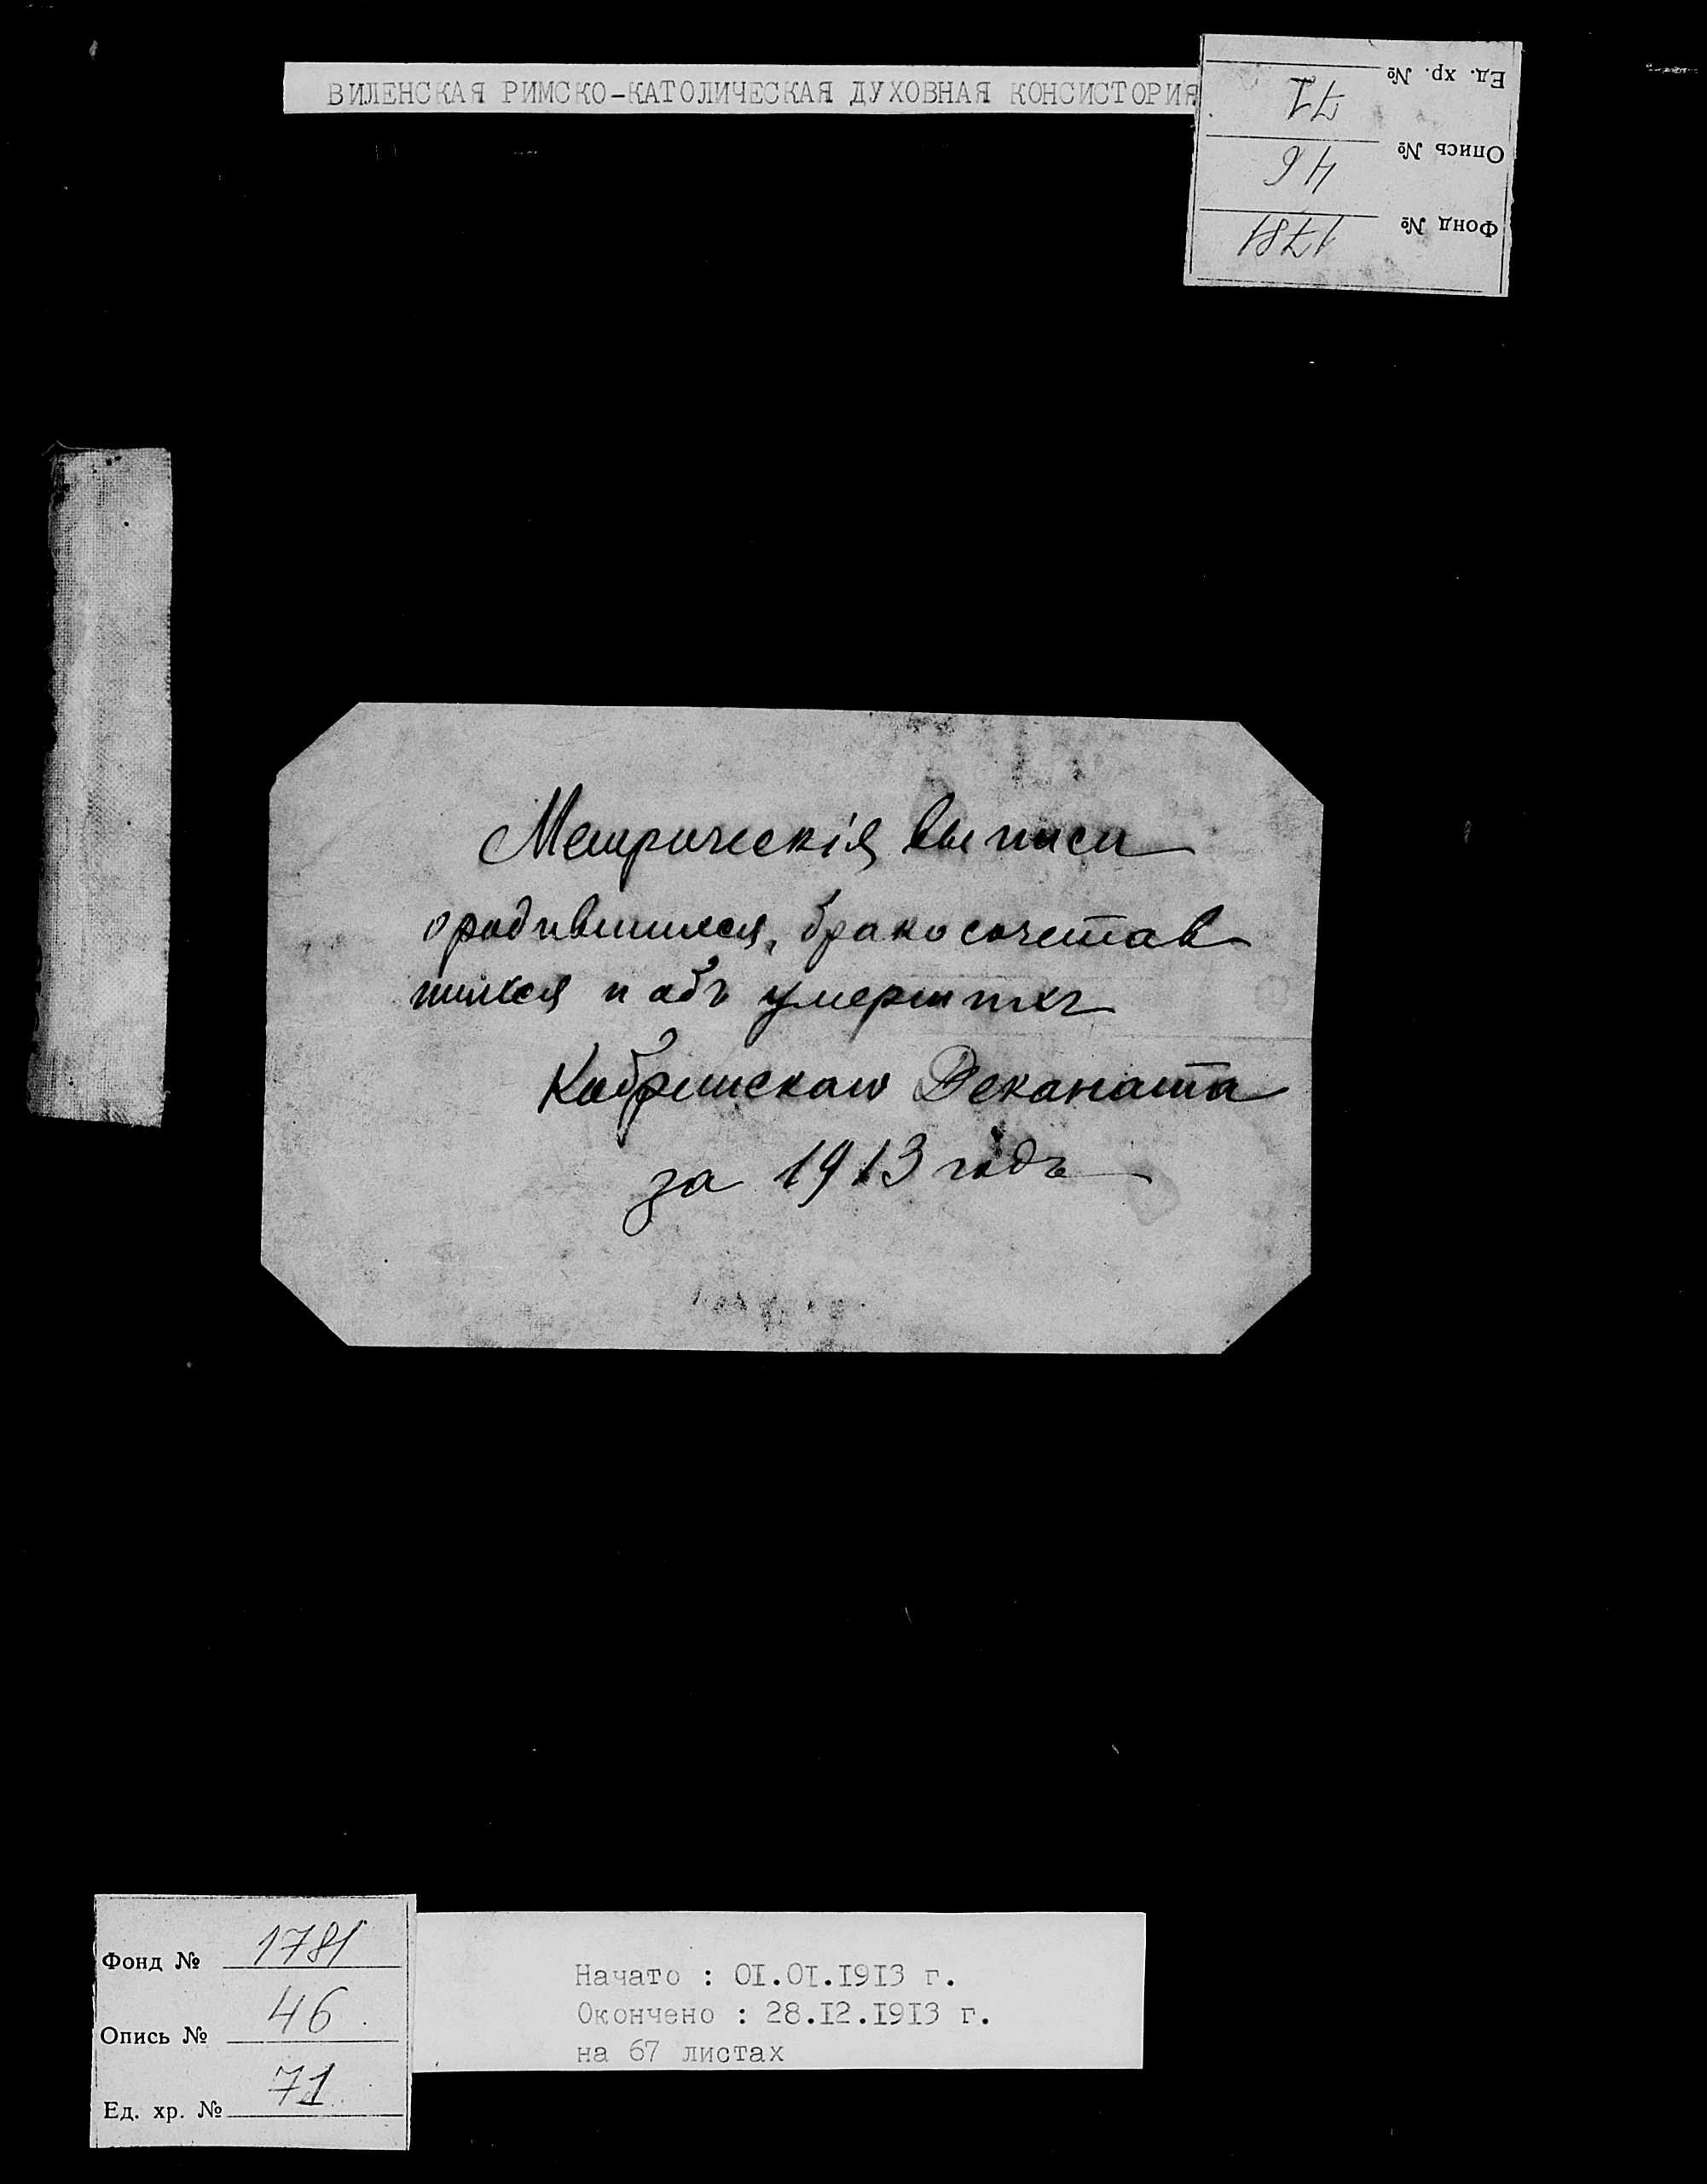 ВИЛЕНСКАЯ РИМСКО-КАТОЛИЧЕСКАЯ ДУХОВНАЯ КОНСИСТОРИЯ
Фонд № 1781
Опись № 46
Ед. хр. № 71
Метрическія выписи
о родившихся, бракосочетав
шихся и объ умершихъ
Кобринскаго Деканата
за 1913 годъ
Фонд № 1781
Опись № 46
Ед. хр. № 71
Начато : 0I.0I.I9I3 г.
Окончено : 28.I2.I9I3 г.
на 67 листах